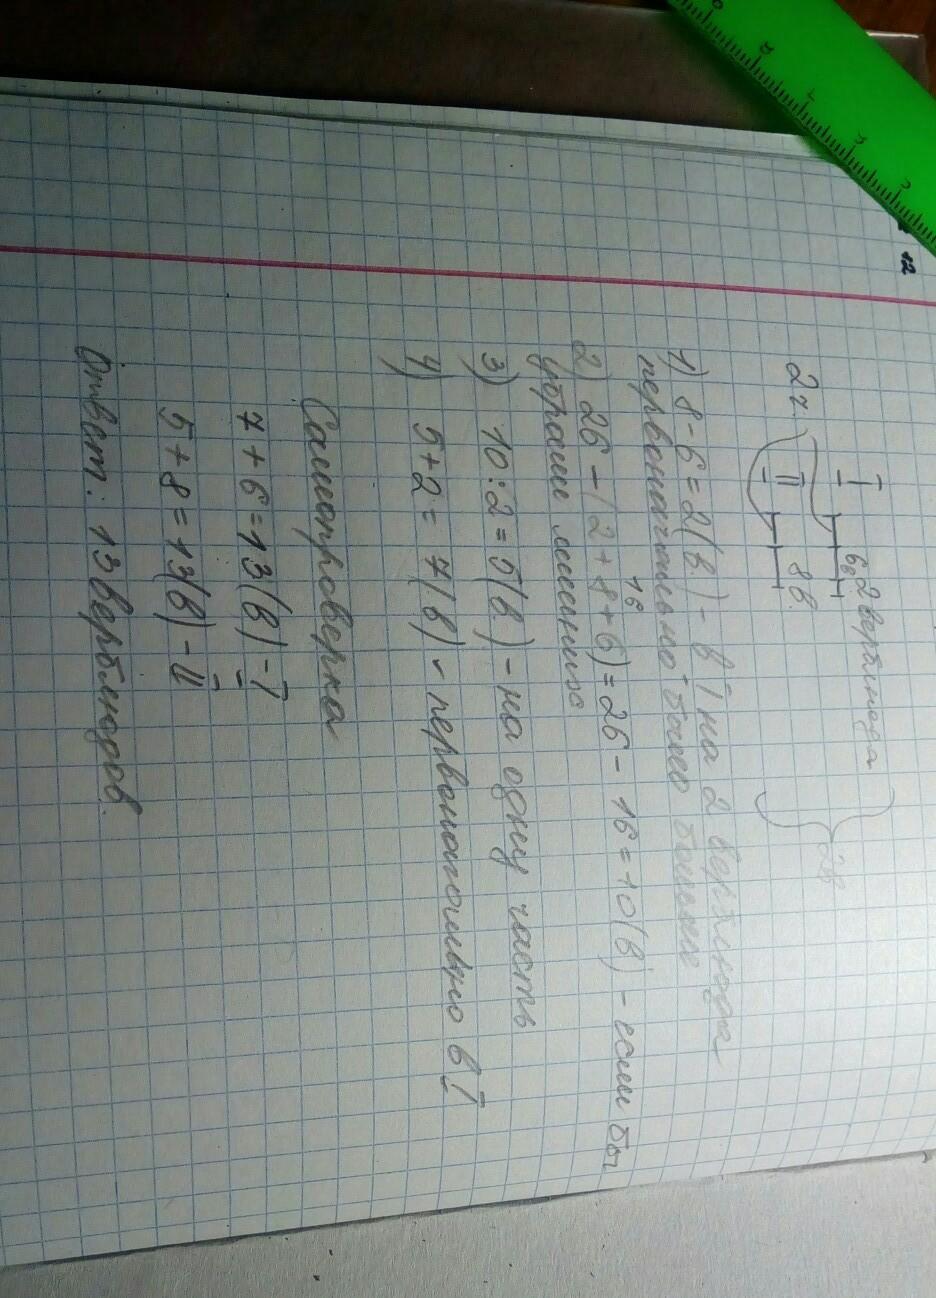 12
I 6в 2 верблюда
2 г.
II 8 в.
26
1) 8-6=2(в.) - в I на 2 верблюда
первоначально более больше
2) 26-(2+8+6)=26-16=10(в) - если бы
16
убрали лишних
3) 10:2=5(в.) - на одну часть
4) 5+2=7(в) - первоначально в I
Самопроверка
7+6=13(в)-I
5+8=13(в)-II
Ответ: 13 верблюдов.